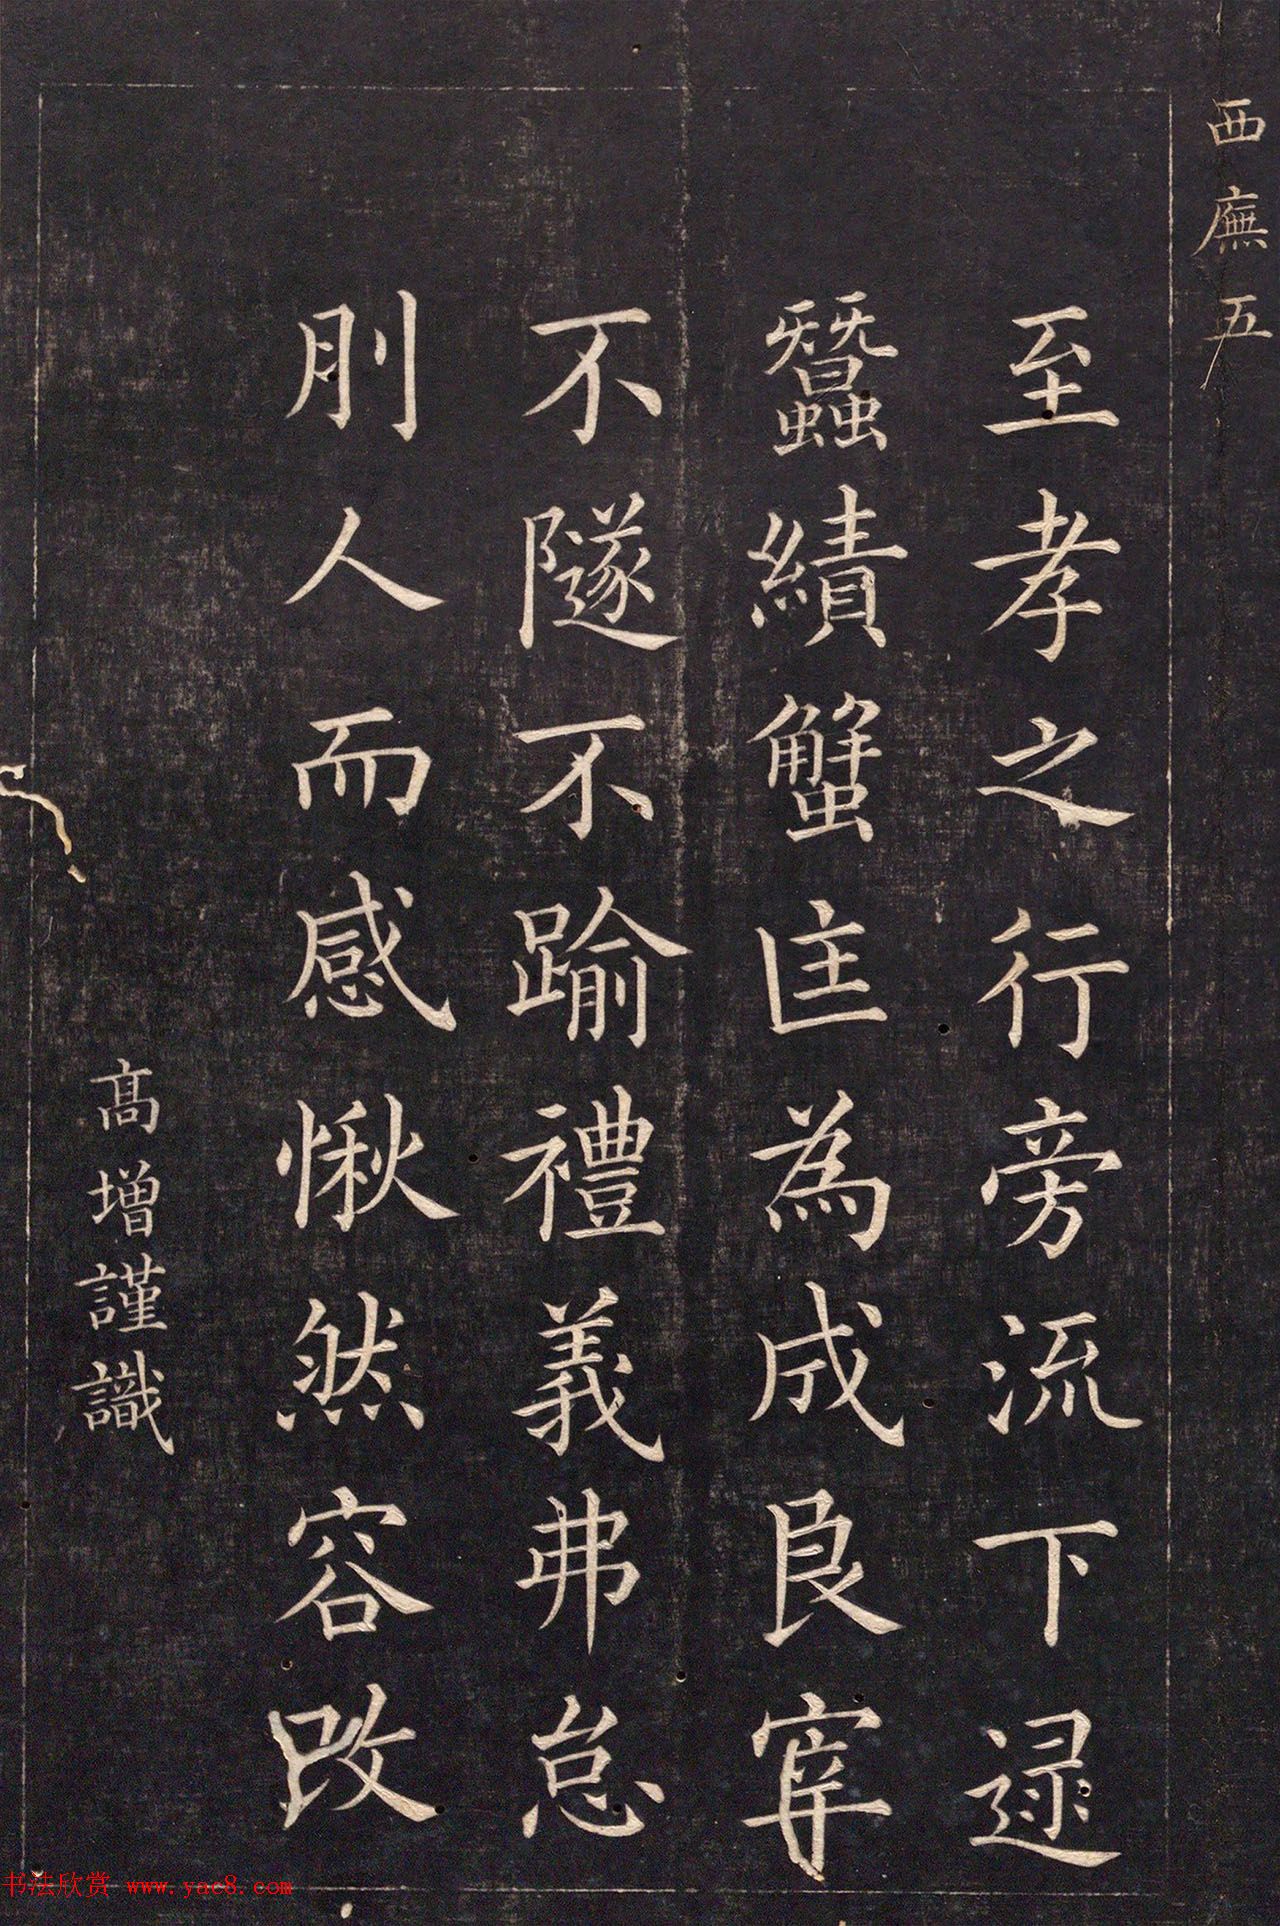 西廡五
至孝之行旁流下逮
蠶績蟹匡為成良宰
不隧不踰禮義弗怠
刖人而感愀然容改
高增謹識
书法欣赏 www.yac8.com